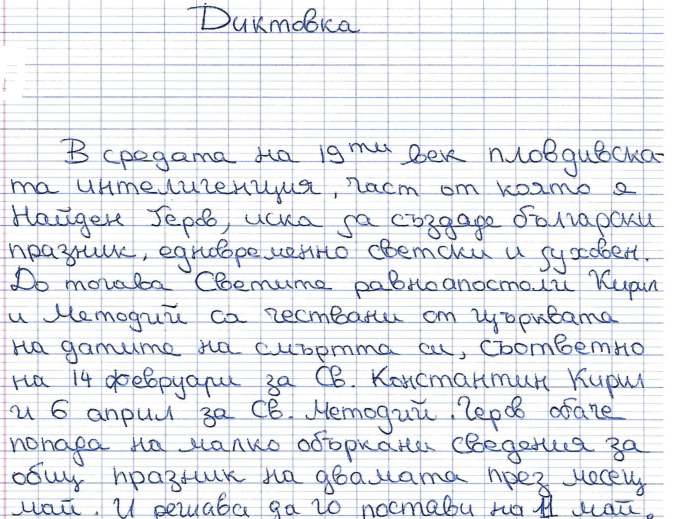 Диктовка
В средата на 19ти век пловдивска-
та интелигенция, част от която е
Найден Геров, иска да създаде български
празник, едновременно светски и духовен.
До тогава Светите равноапостоли Кирил
и Методий са чествани от църквата
на датите на смъртта си, съответно
на 14 февруари за Св. Константин Кирил
и 6 април за Св. Методий. Геров обаче
попада на малко объркани сведения за
общ празник на двамата през месец
май. И решава да го постави на 11 май.